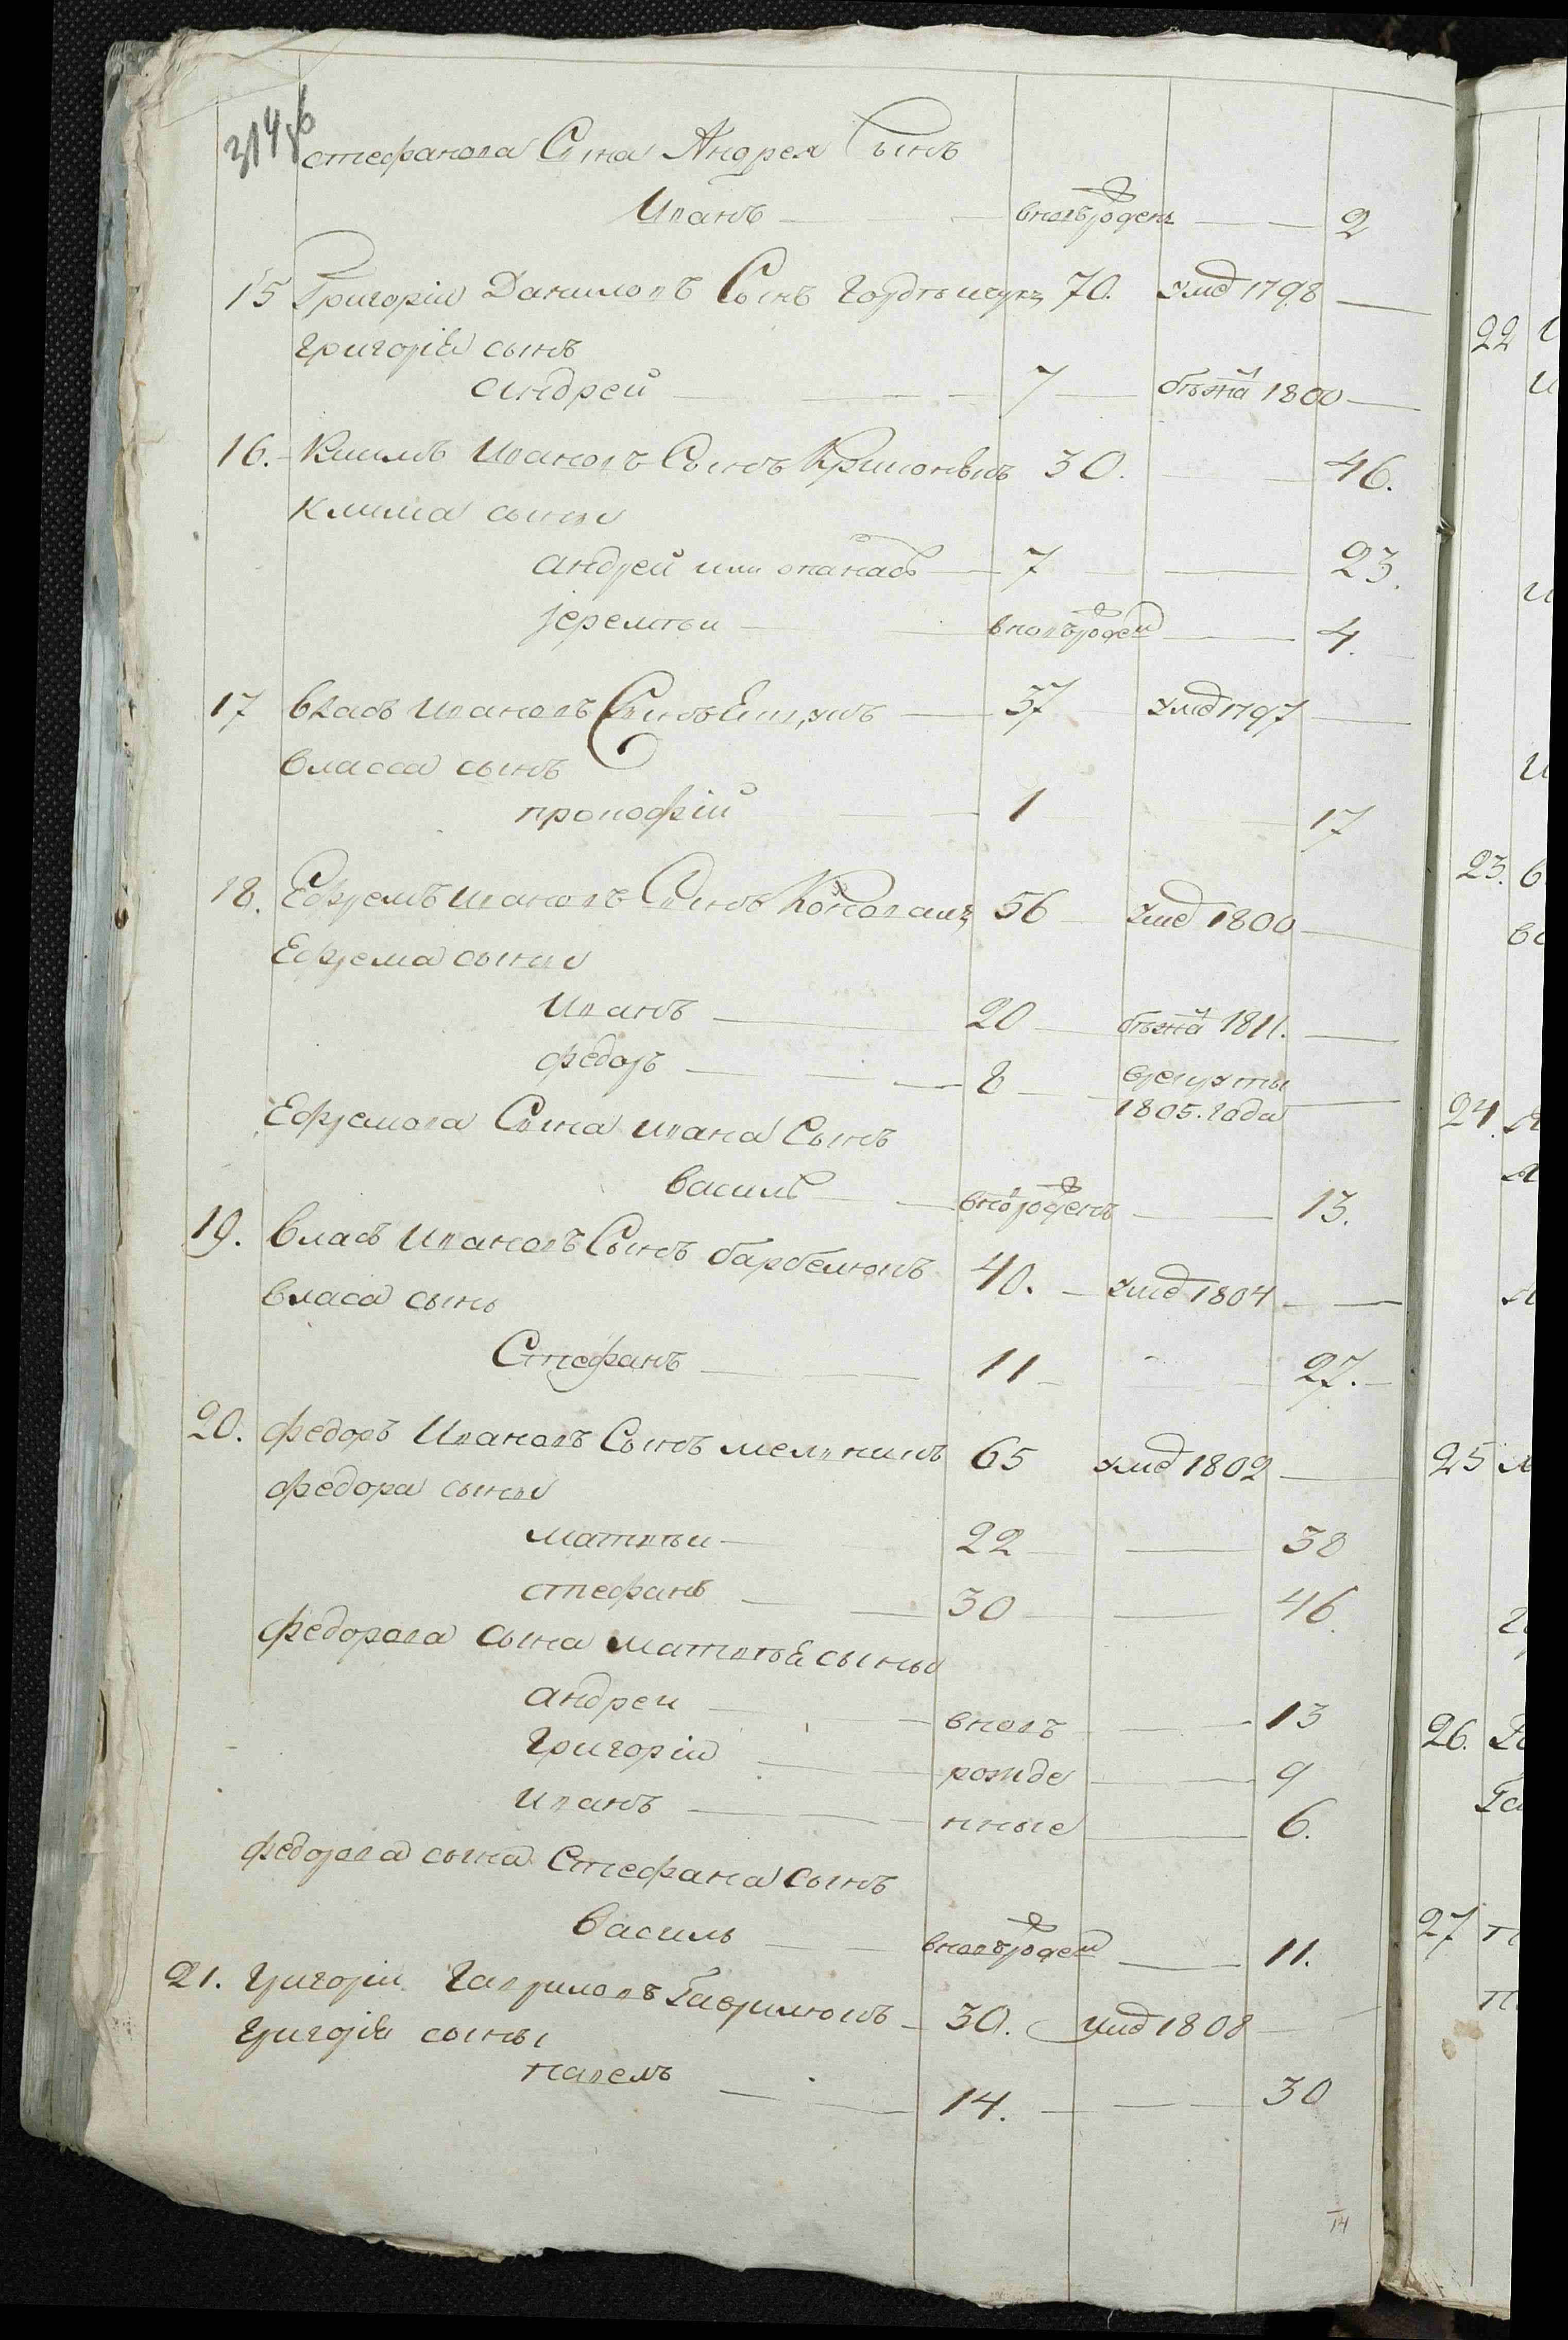 314об
стефанова Сына Андрея Сынъ
Иванъ вновърожден 2
15 Григорій Даниловъ Сынъ 70. умр 1798
григорія сынъ
андрей 7 бѣжа 1800
16. Климъ Ивановъ Сынъ 30. 46.
климa сыны
андрей или опанасъ 7 23.
јеремѣи вновърожден 4.
17 власъ ивановъ Сынъ 37 умр 1797
власса сынъ
прокофій 1 17
18. Ефремъ ивановъ Сынъ 56 умр 1800
Ефрема сыны
Иванъ 20 бѣжа 1811.
федоръ 8 врекруты
1805. года
Ефремова Сына ивана Сынъ
василь вноврожденъ 13.
19. власъ ивановъ Сынъ барбелюкъ 40. умр 1804
власа сынъ
Стефанъ 11 27.
20. федоръ Ивановъ Сынъ мелникъ 65 умр 1802
федора сыны
матвѣи 22 38
стефанъ 30 46.
федорова сына матвѣя сыны
андреи вновъ 13
григоріи рожде 9
иванъ нные 6.
федорова сына Стефана сынъ
василь вновърожден 11.
21. григоріи гавриловъ Гаврилюкъ 30. умр 1808
григорія сыны
павелъ 14. 30
14
22
23.
24.
25
26.
27